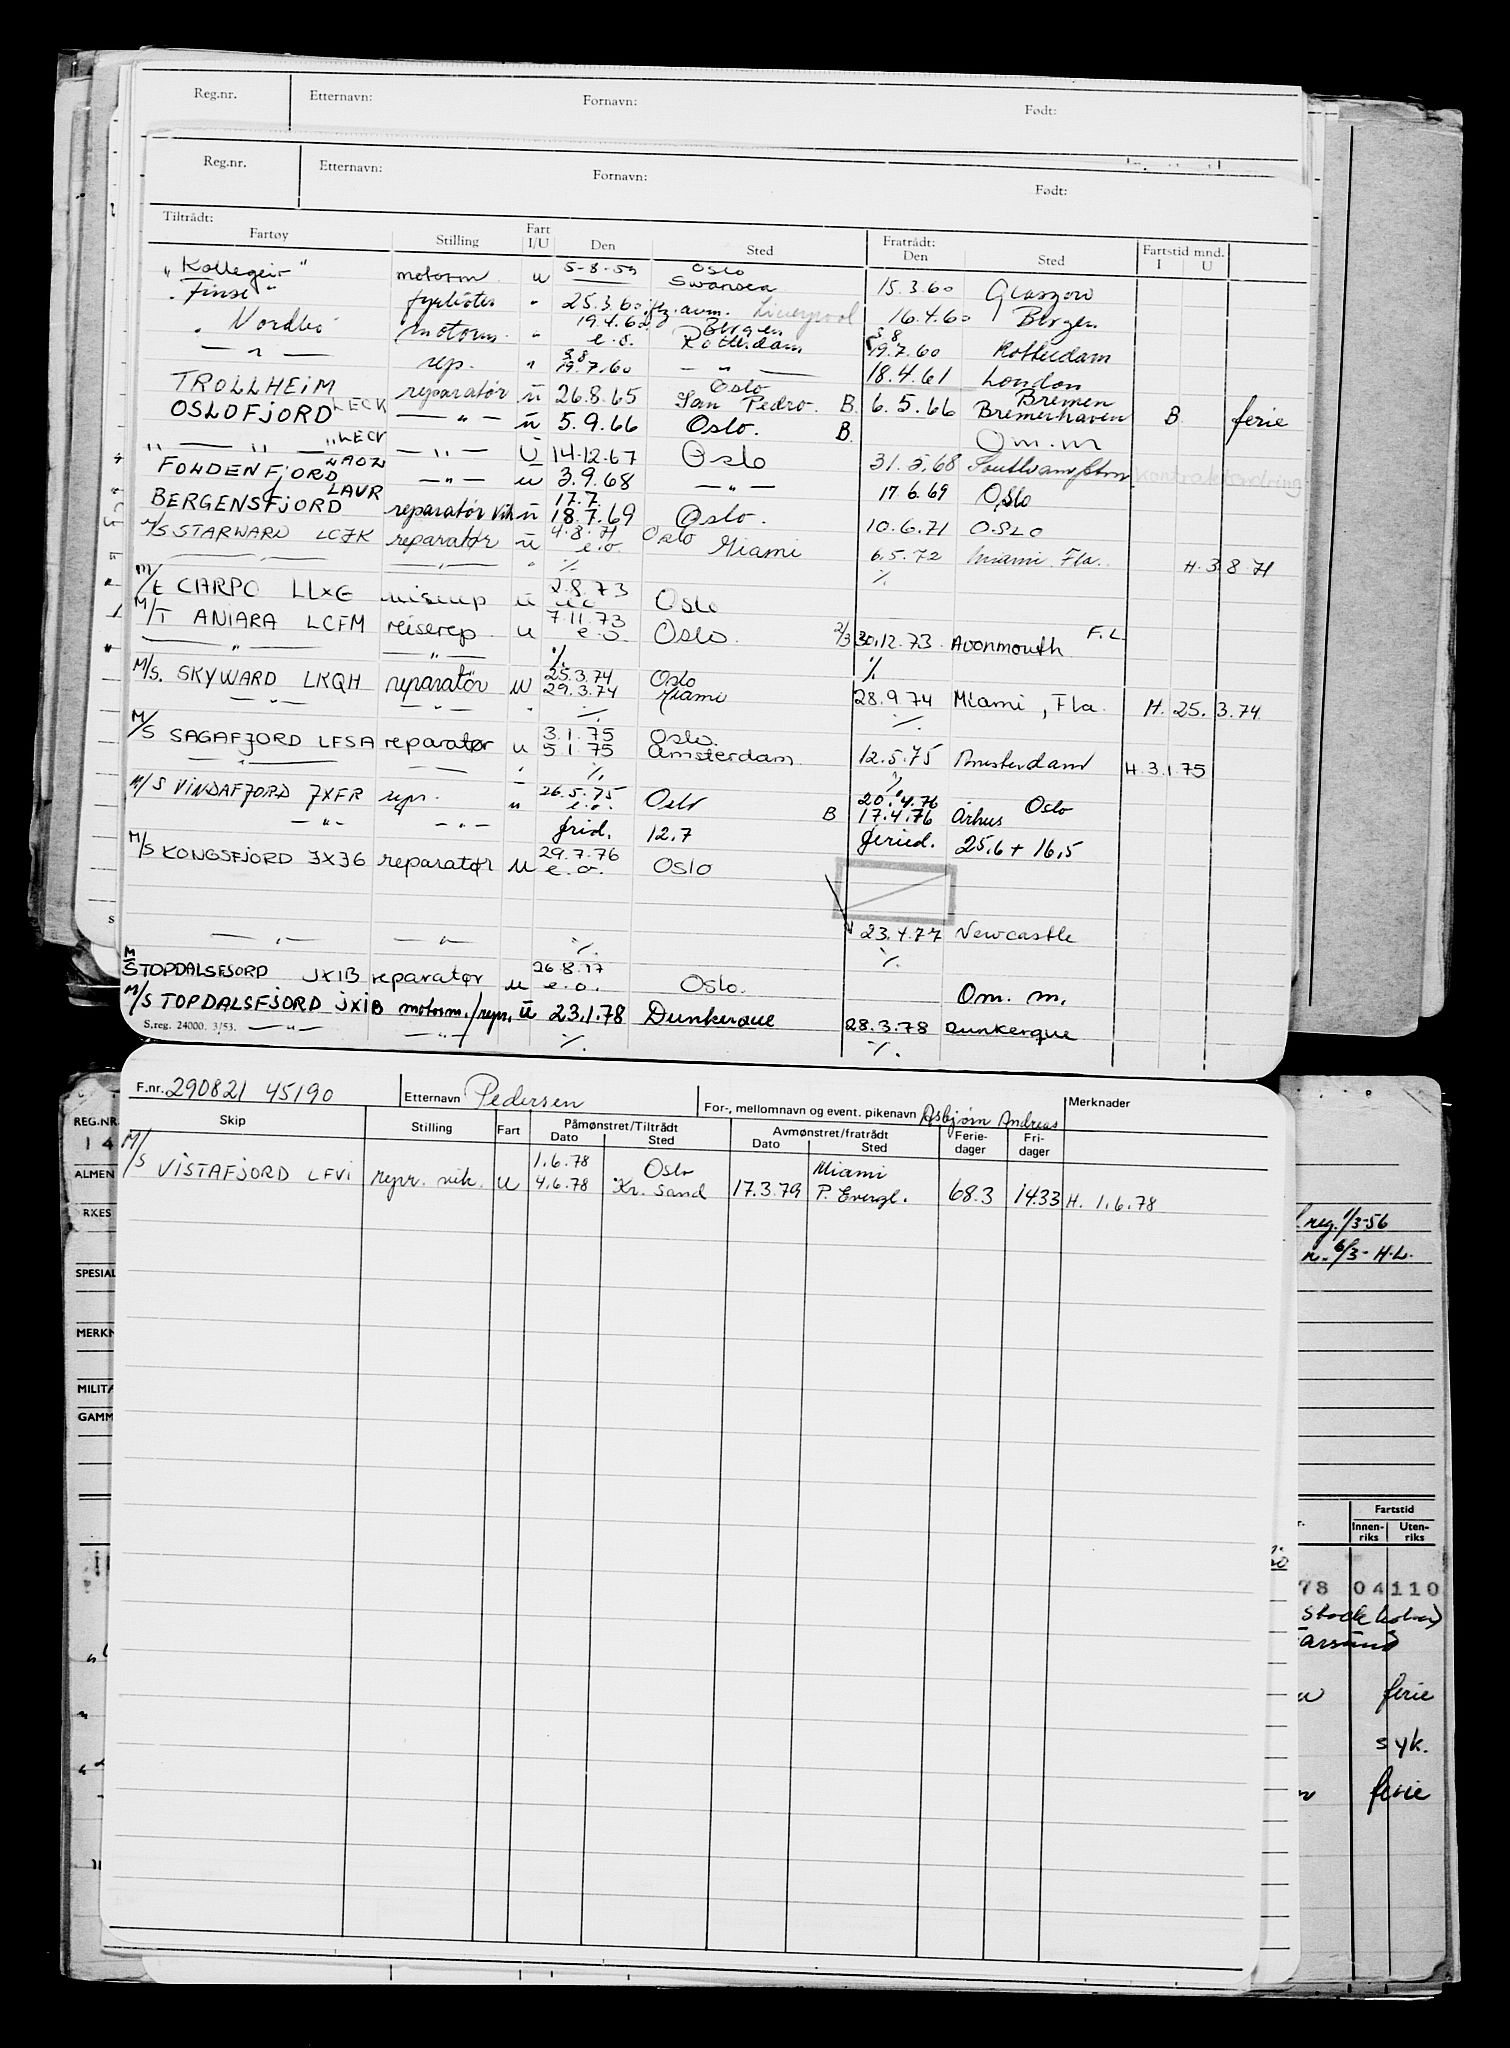 Reg.nr. Etternavn: Fornavn: Født:
Reg.nr. Etternavn: Fornavn: Født:
Tiltrådt: Fratrådt: Fartstid mnd.
Fartøy Stilling Fart I/U Den Sted Den Sted I U
"Kollegeir" motorm. u 5-8-59 Oslo Swansea 15.3.60 Glasgow
"Finse" fyrbøter " 25.3.60 Liverpool 16.4.60 Bergen
" Nordbo motorm. " 19.4.60 e.o. Bergen Rotterdam 3.8 19.7.60 Rotterdam
— " — rep. " 3.8 19.7.60 — " — 18.4.61 London
TROLLHEIM reparatør ū 26.8.65 Oslo San Pedro. B. 6.5.66 Bremen Bremerhaven B ferie
OSLOFJORD LECK — " — ū 5.9.66 Oslo. B. Om.m
" — " — "LECK — " — Ū 14-12.67 Oslo 31.5.68 Southampton Kontraktendring
FOLDENFJORD LAOZ — " — u 3.9.68 — " — 17.6.69 Oslo
BERGENSFJORD LAVR reparatør vik ū 17.7. 18.7.69 Oslo. 10.6.71 OSLO
M/S STARWARD LCJK reparatør ū 4.8.71 e.o. Oslo Miami 6.5.72 Miami, Fla. H. 3.8.71
— " — " %. %.
M/T CARPO LLXG reiserep u 2.8.73 Oslo
M/T ANIARA LCFM reiserep. u 7.11.73 e.o. Oslo. 2/3 30.12.73 Avonmouth F.L
— " — — " — %. %.
M/S. SKYWARD LKQH reparatør u 25.3.74 29.3.74 Oslo Miami 28.9.74 Miami, Fla. H. 25.3.74
— " — — " — " %. %.
M/S SAGAFJORD LFSA reparatør u 3.1.75 5.1.75 Oslo. Amsterdam 12.5.75 Amsterdam H.3.1.75
— " — — " — " %. %.
M/S VINDAFJORD JXFR repr. u 26.5.75 e.o. Oslo B 20.4.76 17.4.76 Oslo Århus
— " — — " — frid. 12.7 feried. 25,6 + 16,5
M/S KONGSFJORD JXJG reparatør u 29.7.76 e.o. Oslo
23.4.77 Newcastle
— " — — " — %. %.
M/S TOPDALSFJORD JXIB reparatør u 26.8.77 e.o. Oslo. Om. m.
M/S TOPDALSFJORD JXIB motorm./repr. ū 23.1.78 Dunkerque 28.3.78 Dunkerque
S.reg. 24000. 3/53. — " — — " — %. %.
F.nr. 290821 45190 Etternavn Pedersen For-, mellomnavn og event. pikenavn Asbjørn Andreas Merknader
Skip Stilling Fart Påmønstret/Tiltrådt Dato Sted Avmønstret/fratrådt Dato Sted Ferie-dager Fri-dager
M/S VISTAFJORD LFVI repr. vik. u 1.6.78 4.6.78 Oslo Kr. Sand 17.3.79 Miami P. Evergl. 68.3 14.33 H. 1.6.78
REG.NR.
14
ALMEN
RKES
SPESIAL
MERKN
MILITÆ
GAMM
reg. 1/3-56
n. 6/3- H.L.
Fartstid
Innen-riks Uten-riks
78 04110
Stockholm)
Farsund
ferie
syk.
ferie